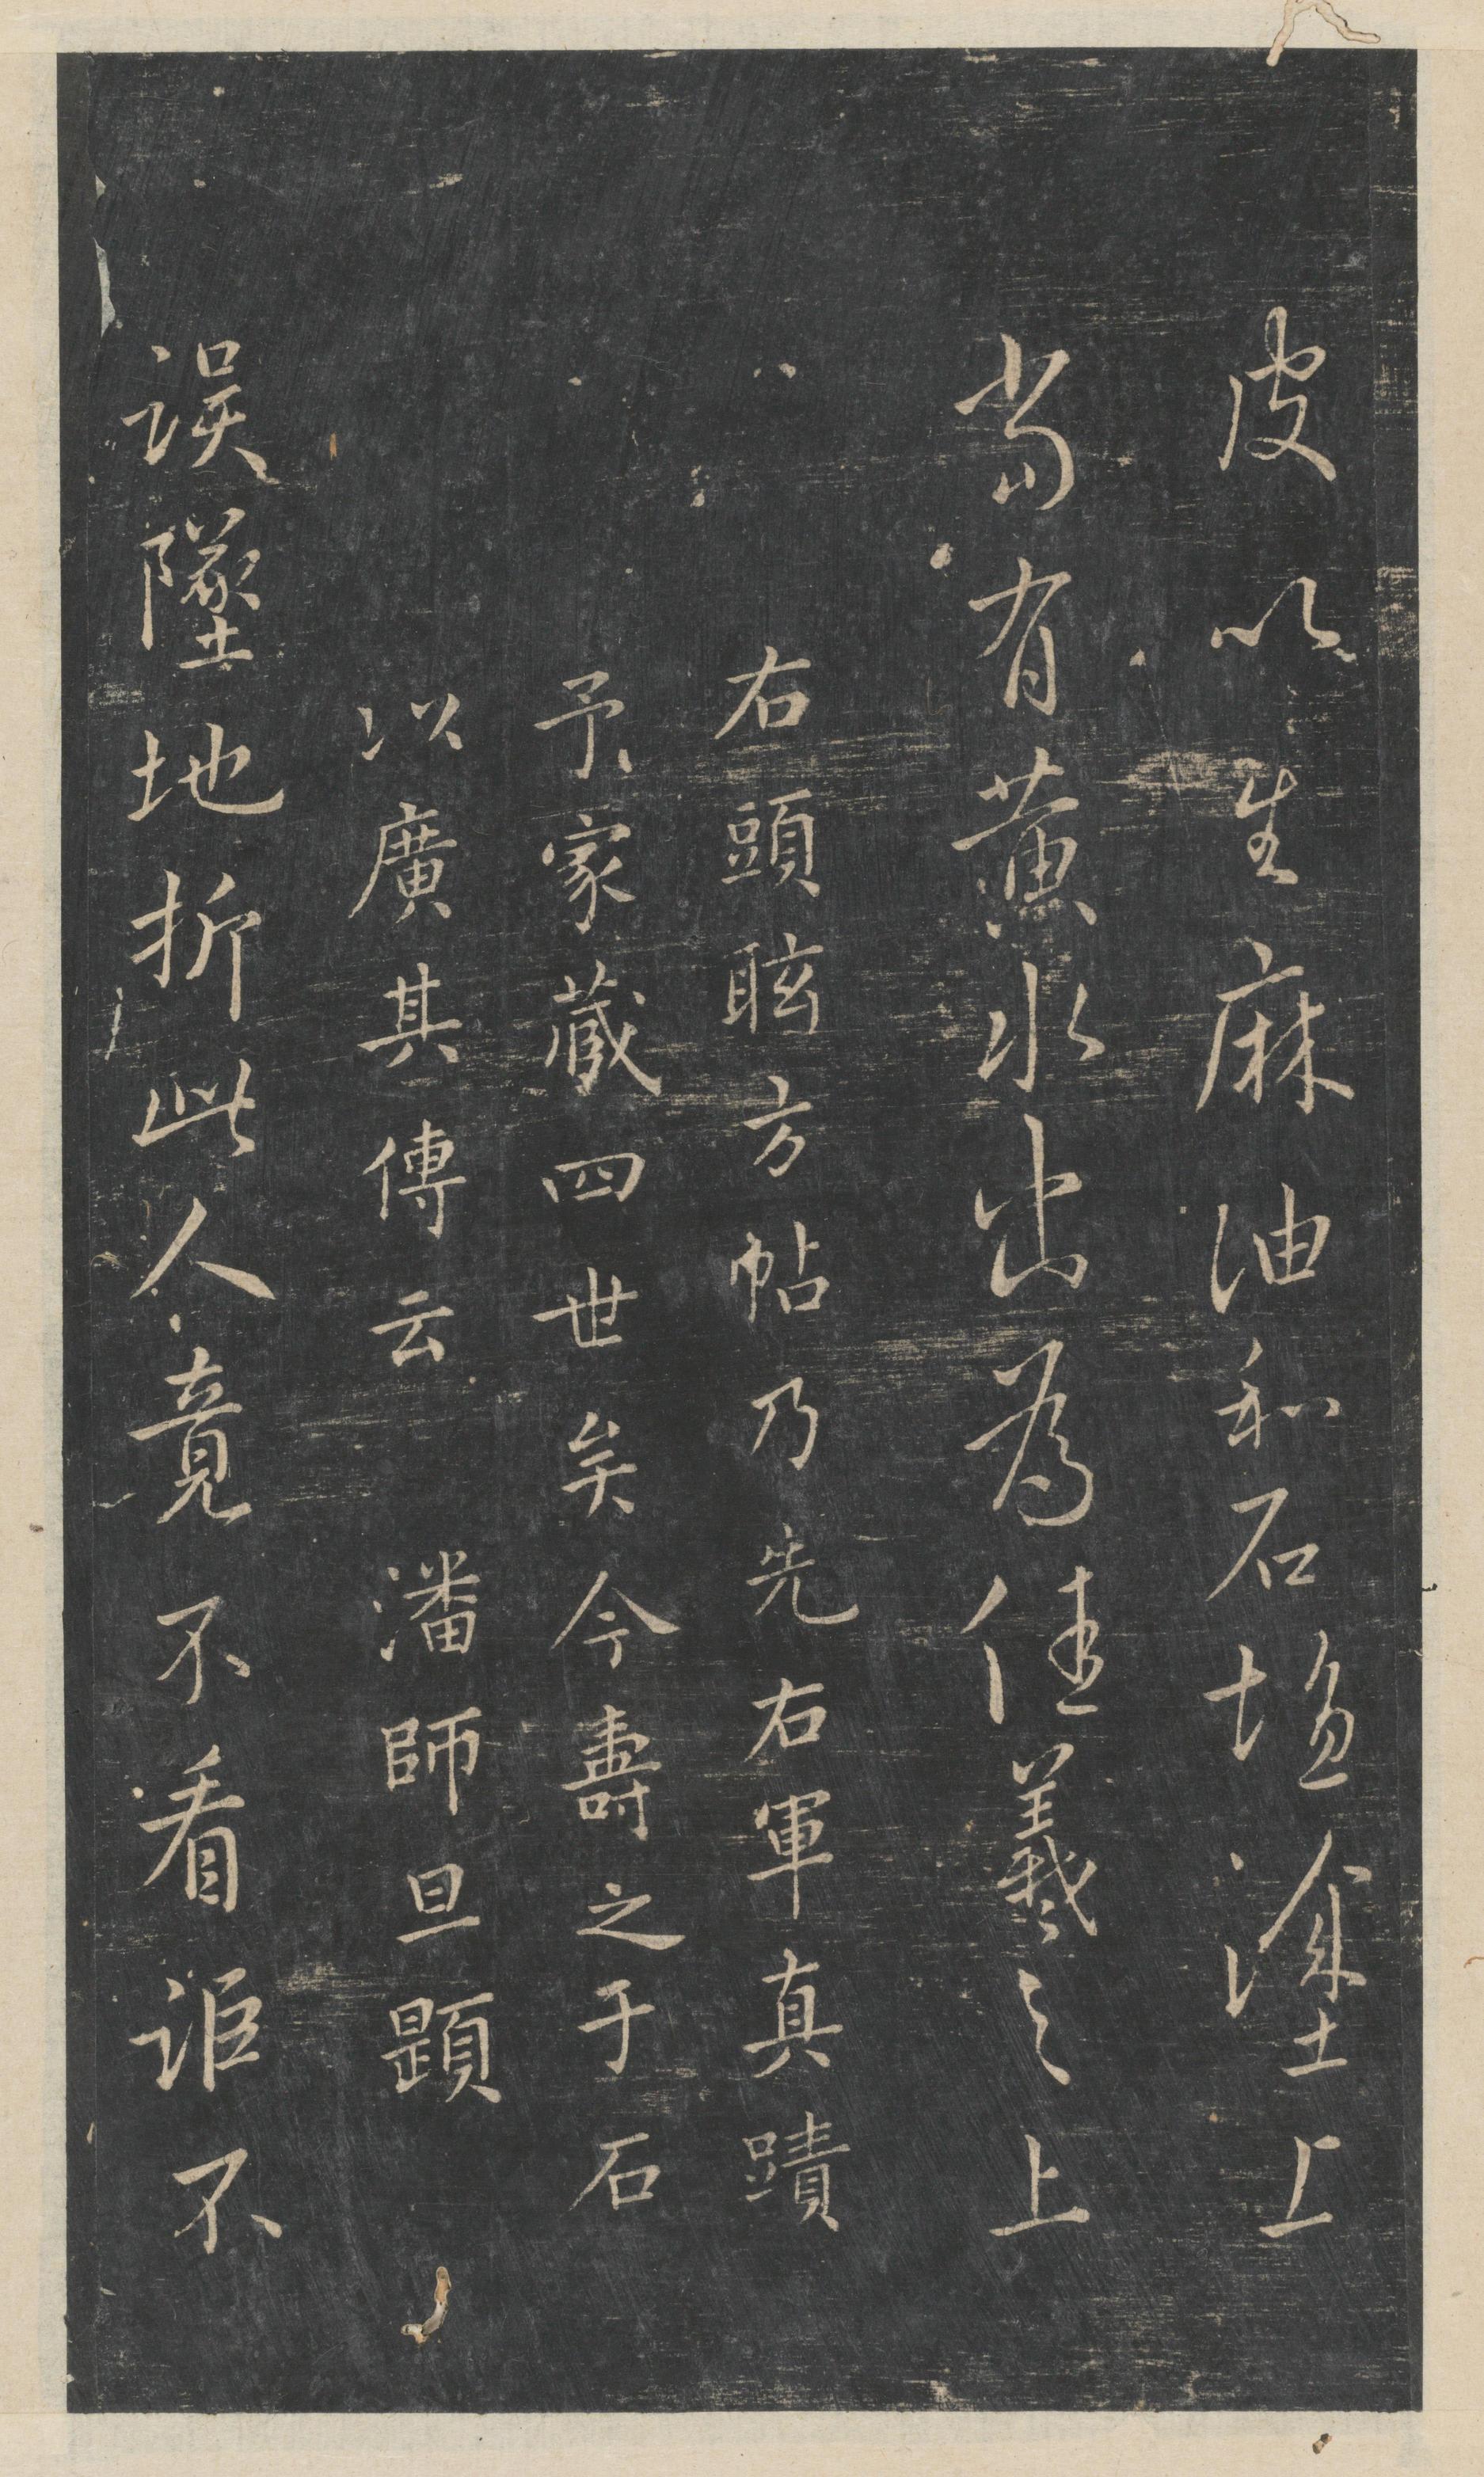 皮以生麻油和石塩塗上
當有黃水出為佳羲之上
右頭眩方帖乃先右軍真蹟
予家藏四世矣今壽之于石
以廣其傳云　潘師旦題
誤墜地折此人竟不看詎不